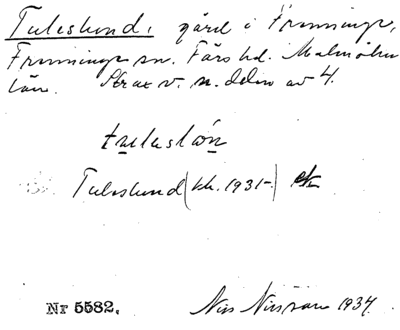 Tuleslund, gård i Frenninge,
Frenninge sn. Färs hd. Malmöhus
län. Strax v. n. delen av 4.
Tuleslund (kk. 1931-)
Nr 5582. Nils Nilsson 1934.